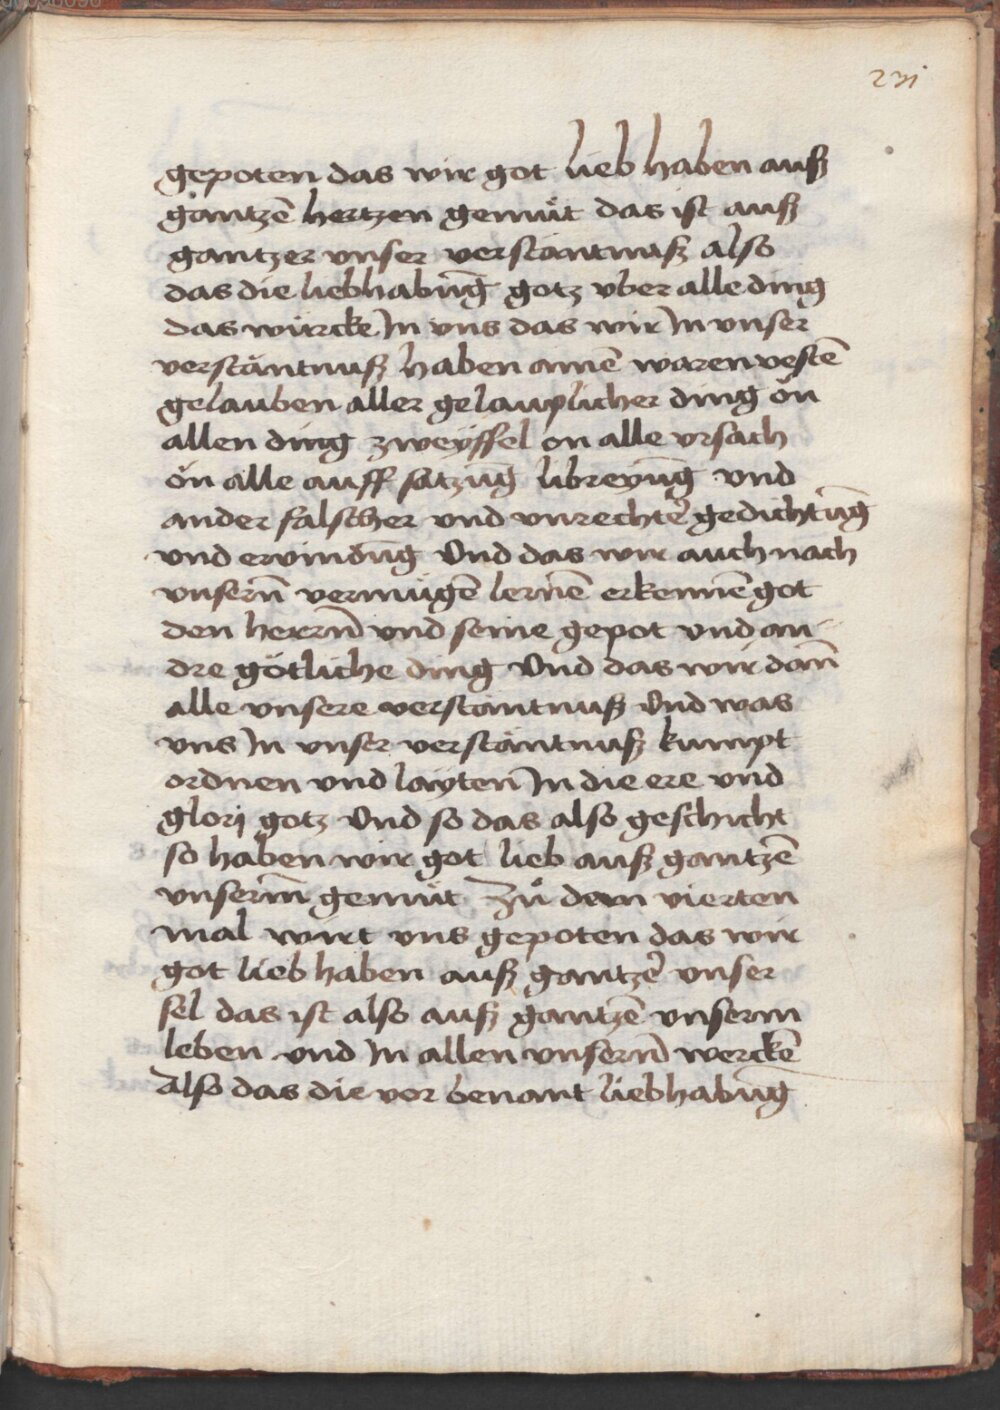 231
gepoten das wir got lieb haben auß
gantzē hertzen gemu̇t das ist auß
gantzer vnser verstäntnuß also
das die liebhabūg gotz vber alle ding
das würcke Jn vns das wir Jn vnser
verstäntnuß haben ainē waren vestē
gelauben aller gelauplicher ding ön
allen ding zweyffel on alle vrsach
ön alle auff satzūg libreyūg vnd
ander falscher vnd vnrechter gedichtūg
vnd ervindūg Vnd das wir auch nach
vnsern̄ vermügē lernē erkennē got
den herrn̄ vnd seine gepot vnd an
dre götliche ding Vnd das wir dan̄
alle vnsere verstantnuß Vnd was
vns Jn vnser verstäntnuß kumpt
ordnen vnd layten Jn die ere vnd
glorj gotz Vnd so das also geschicht
so haben wir got lieb auß gantzē
vnserm̄ gemüt Zů dem vierten
mal wirt vns gepoten das wir
got lieb haben auß gantzer vnser
sel das ist also auß gantzē vnserm
leben vnd Jn allen vnsern̄ werckē
Also das die vor benant liebhabūg